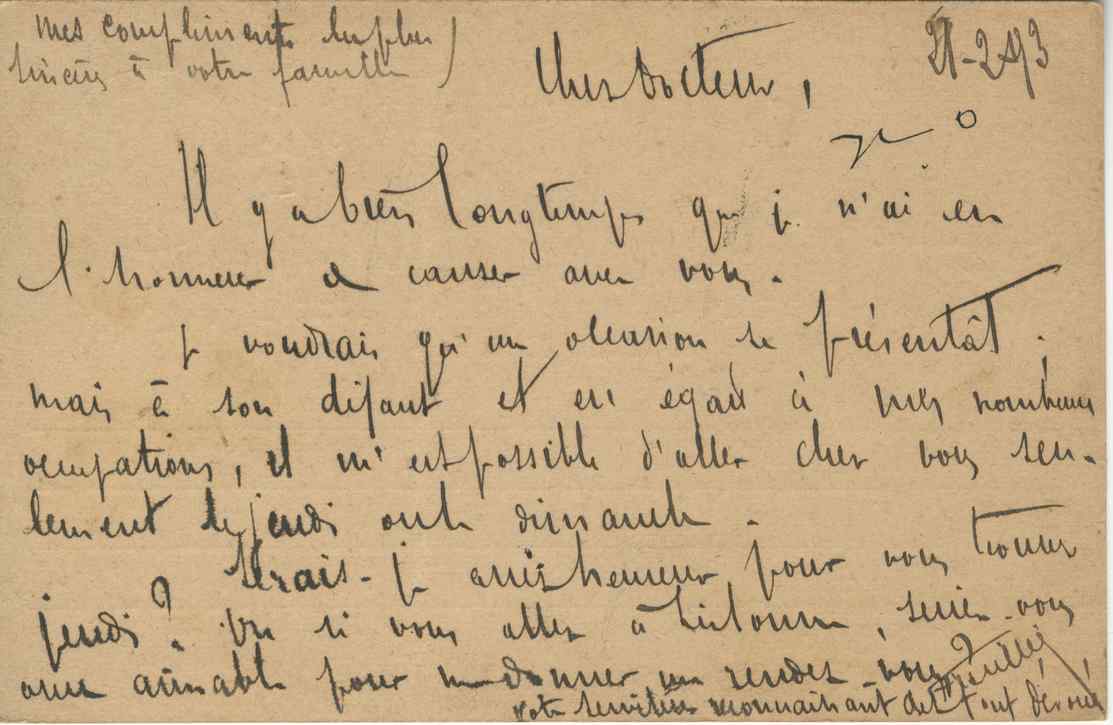 Mes compliments les plus
sincères à votre famille
Cher Docteur,
Il y a bien longtemps que je n'ai eu
l'honneur de causer avec vous.
Je voudrais qu'une occasion se présentât ;
mais à son défaut et eu égard à mes nombreuses
occupations, il m'est possible d'aller chez vous seu-
lement le jeudi ou le dimanche.
Serais-je assez heureux pour vous trouver
jeudi ? Ou si vous allez à, seriez-vous
assez aimable pour me donner un rendez-vous ?
votre serviteur reconnaissant et tout dévoué